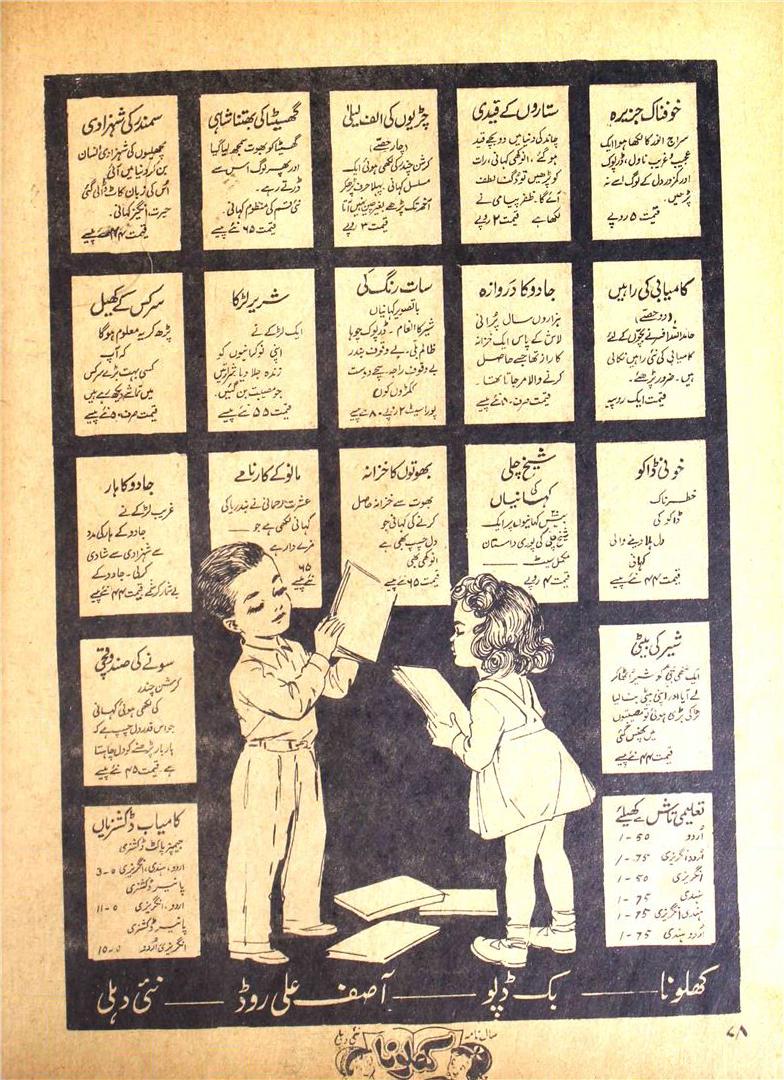 خوفناک جزیرہ
سراج انور کا لکھا ہوا ایک
عجیب و غریب ناول، ڈرپوک
اور کمزور دل کے لوگ اسے نہ
پڑھیں۔
قیمت ۵ روپے
ستاروں کے قیدی
چاند کی دنیا میں دو بچے قید
ہو گئے، انوکھی کہانی، رات
کو پڑھیں تو دُگنا لطف
آئے گا۔ ظفر پیامی نے
لکھا ہے قیمت ۲ روپے
چڑیوں کی الف لیلیٰ
(چار حصّے)
کرشن چندر کی لکھی ہوئی ایک
مسلسل کہانی۔ پہلا حرف پڑھ کر
آخر تک پڑھے بغیر چین نہیں آتا
قیمت ۳ روپے
گھسیٹا کی بھتنا شاہی
گھسیٹا کو بھوت سمجھ لیا گیا
اور پھر لوگ اس سے
ڈرتے رہے۔
نئی قسم کی منظوم کہانی۔
قیمت ۶۵ نئے پیسے
سمندر کی شہزادی
مچھلیوں کی شہزادی انسان
بن کر دنیا میں آئی
اُس کی زبان کاٹ ڈالی گئی
حیرت انگیز کہانی۔
قیمت ۴۴ نئے پیسے
کامیابی کی راہیں
(دو حصّے)
حامد اللہ افسر نے بچوں کے لئے
کامیابی کی نئی راہیں نکالی
ہیں۔ ضرور پڑھئے۔
قیمت ایک روپیہ
جادو کا دروازہ
ہزاروں سال پرانی
لاش کے پاس ایک خزانہ
کا راز تھا جسے حاصل
کرنے والا مر جاتا تھا۔
قیمت صرف نئے پیسے
سات رنگ کی
باتصویر کہانیاں
شیر کا انعام۔ ڈرپوک چوہا
ظالم بلی۔ بے وقوف بندر
بے وقوف راجہ۔ سچے دوست
ککڑوں کوں
پورا سیٹ ۲ روپے ۸۰ نئے پیسے
شریر لڑکا
ایک لڑکے نے
اپنی نوکھانیوں کو
زندہ جلا دیا شرارتیں
جو مصیبت بن گئیں۔
قیمت ۵۵ نئے پیسے
سرکس کے کھیل
پڑھ کر یہ معلوم ہوگا
کہ آپ
کسی بہت بڑے سرکس
میں تماشے دیکھ رہے ہیں
قیمت صرف ۵۰ نئے پیسے
خونی ڈاکو
خطرناک
ڈاکو کی
دل ہلا دینے والی
کہانی
قیمت ۴۴ نئے پیسے
شیخ چلی
کی
کہانیاں
بیس کہانیوں پر ایک
شیخ چلی کی پوری داستان
مکمل سیٹ
قیمت ۴ روپے
بھوتوں کا خزانہ
بھوت سے خزانہ حاصل
کرنے کی کہانی جو
دل چسپ بھی ہے
انوکھی بھی
قیمت ۶۵ نئے پیسے
مانو کے کارنامے
عشرت رحمانی نے بندریا کی
کہانی لکھی ہے جو
مزے دار ہے
۶۵
نئے پیسے
جادو کا ہار
غریب لڑکے نے
جادو کے ہار کی مدد
سے شہزادی سے شادی
کرلی۔ جادو کے
بے شمار کرشمے قیمت ۴۴ نئے پیسے
شیر کی بیٹی
ایک ننھی بچی کو شیر اٹھا کر
لے آیا اور اپنی بیٹی بنا لیا
لڑکی بڑی ہوئی تو مصیبتوں
میں پھنس گئی
قیمت ۴۴ نئے پیسے
سونے کی صندوقچی
کرشن چندر
کی لکھی ہوئی کہانی
جو اس قدر دل چسپ ہے کہ
بار بار پڑھنے کو دل چاہتا
ہے۔ قیمت ۴۵ نئے پیسے
تعلیمی تاش کھیلئے
اُردو 1-50
اُردو انگریزی 1-75
انگریزی 1-50
ہندی 1-75
ہندی انگریزی 1-75
اُردو ہندی 1-75
کامیاب ڈکشنریاں
جیمز پاکٹ ڈکشنری
اردو، ہندی، انگریزی 3-0
پانیر ڈکشنری
اردو، انگریزی 11-0
پانیر ڈکشنری
انگریزی اُردو 10-0
کھلونا — بک ڈپو — آصف علی روڈ — نئی دہلی
سال نامہ کھلونا نئی دہلی
۷۸